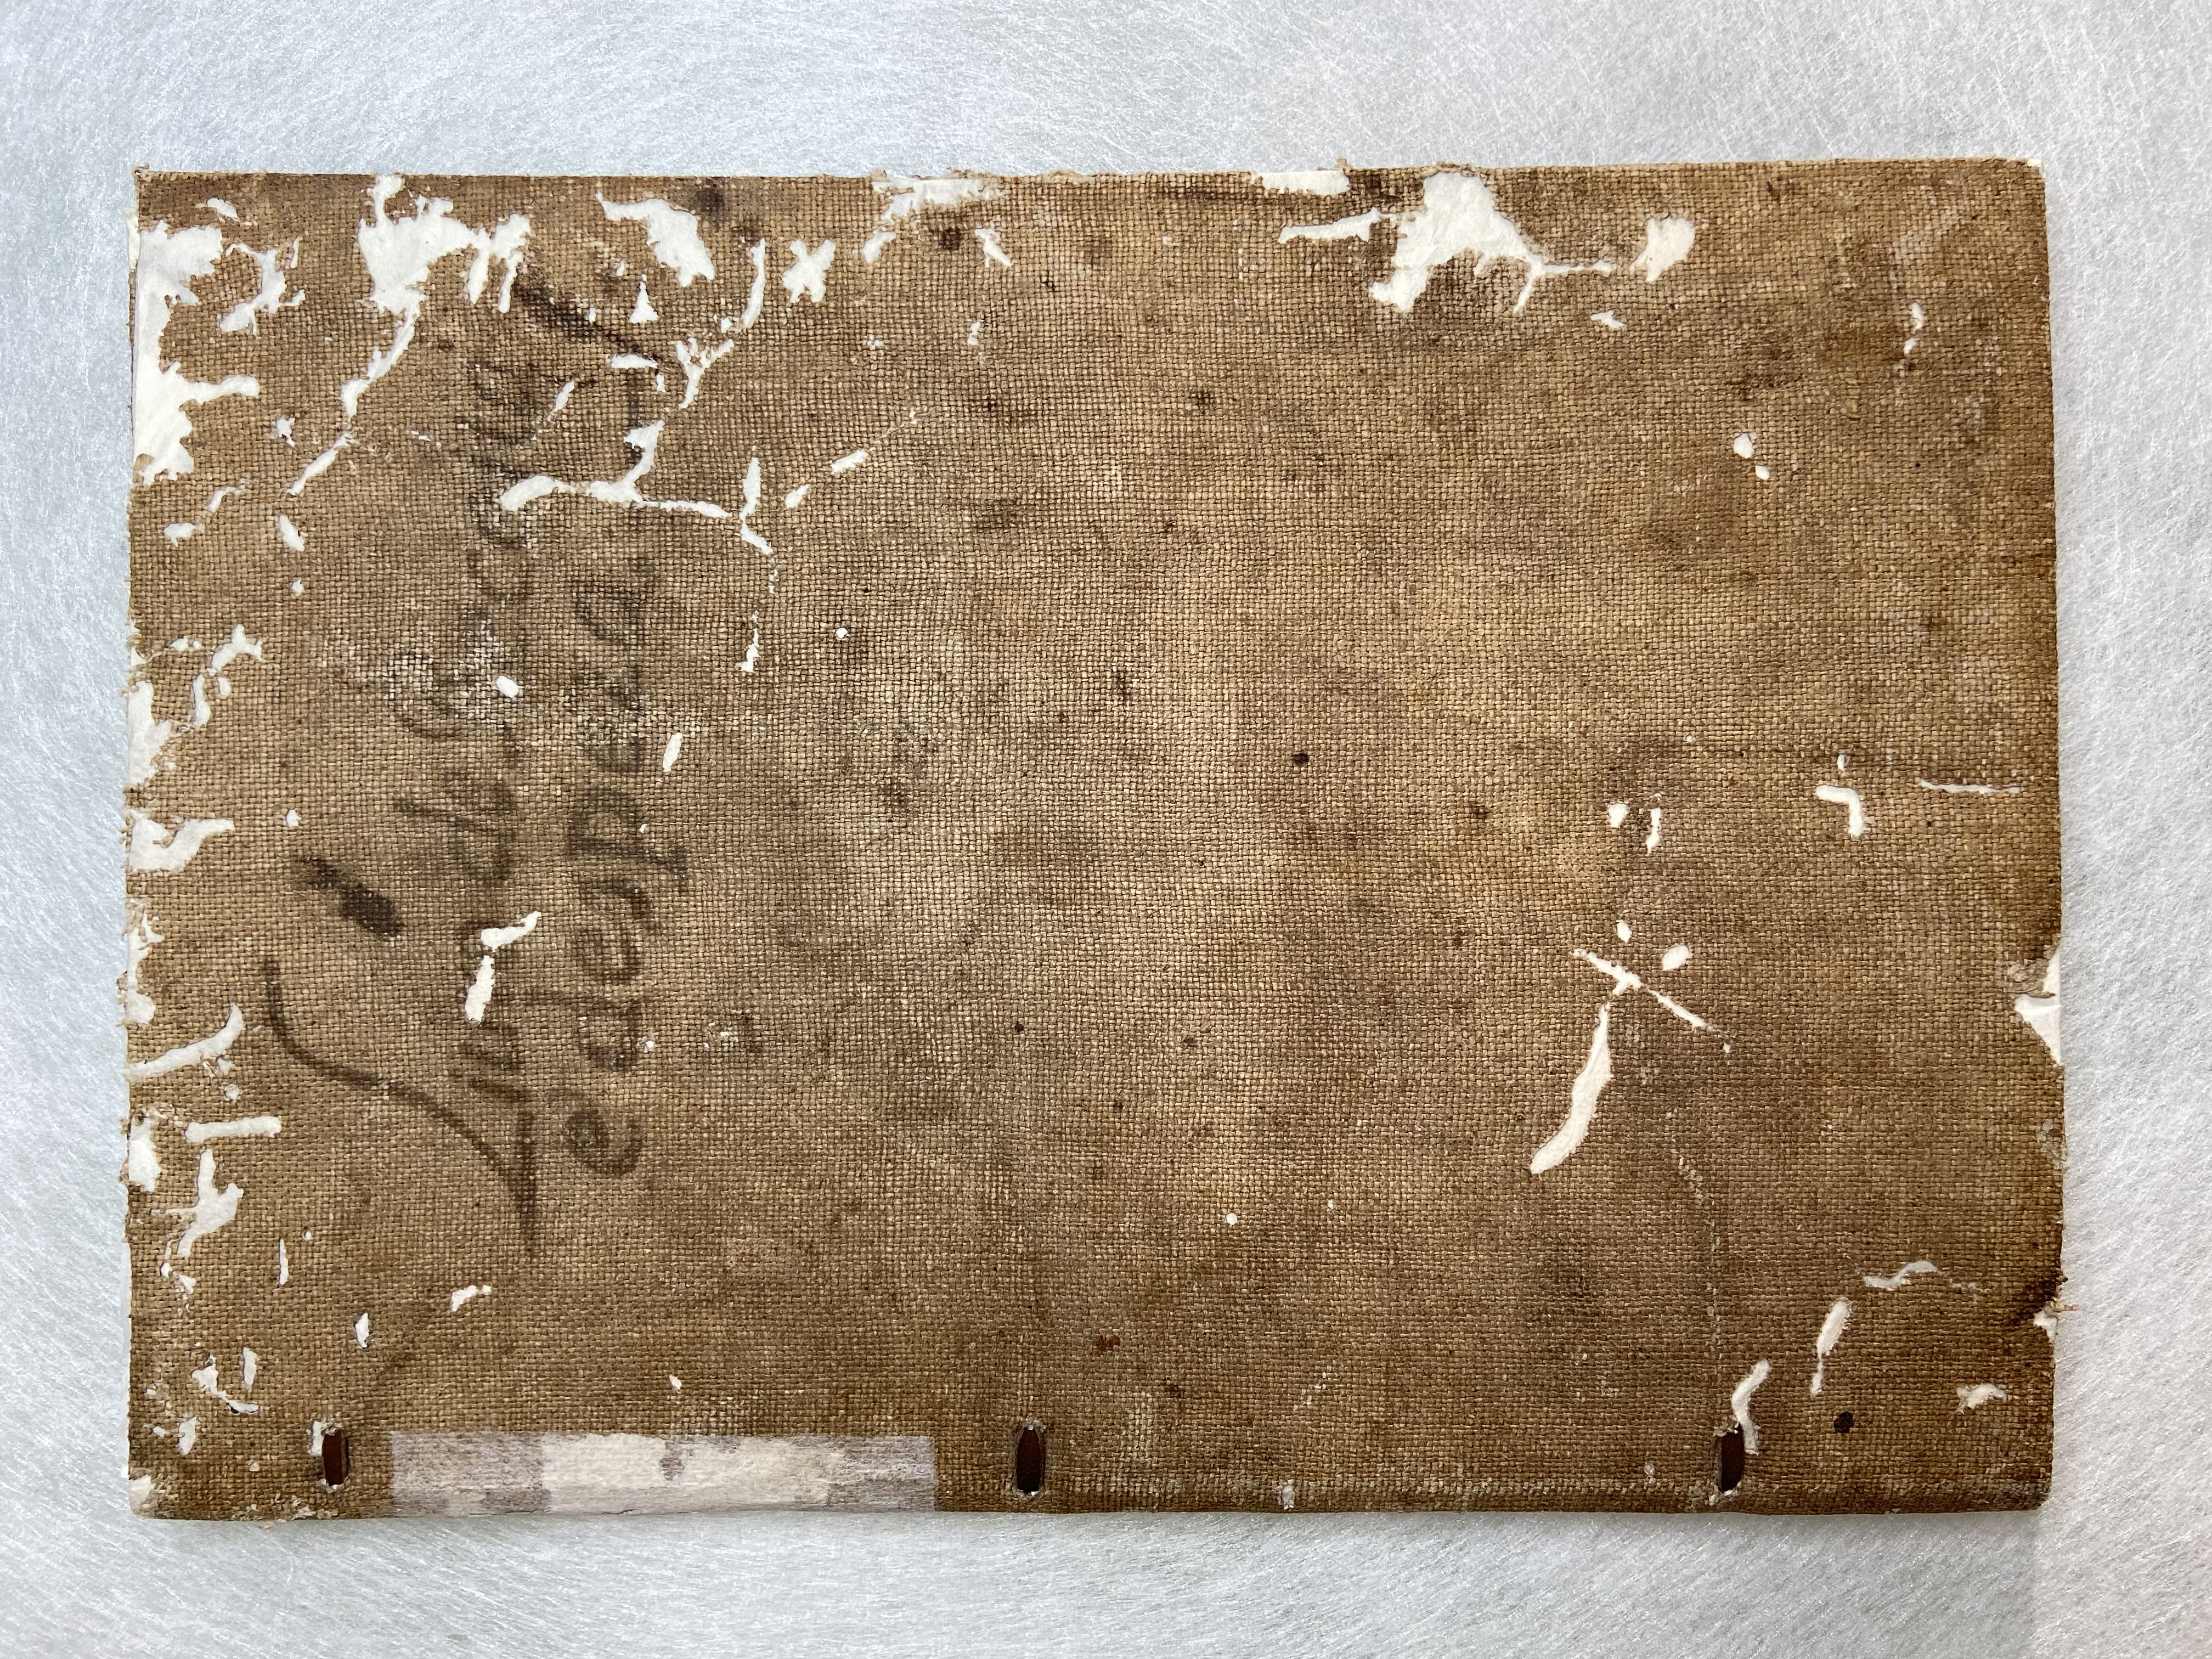 Livro de Receita
e despeza.